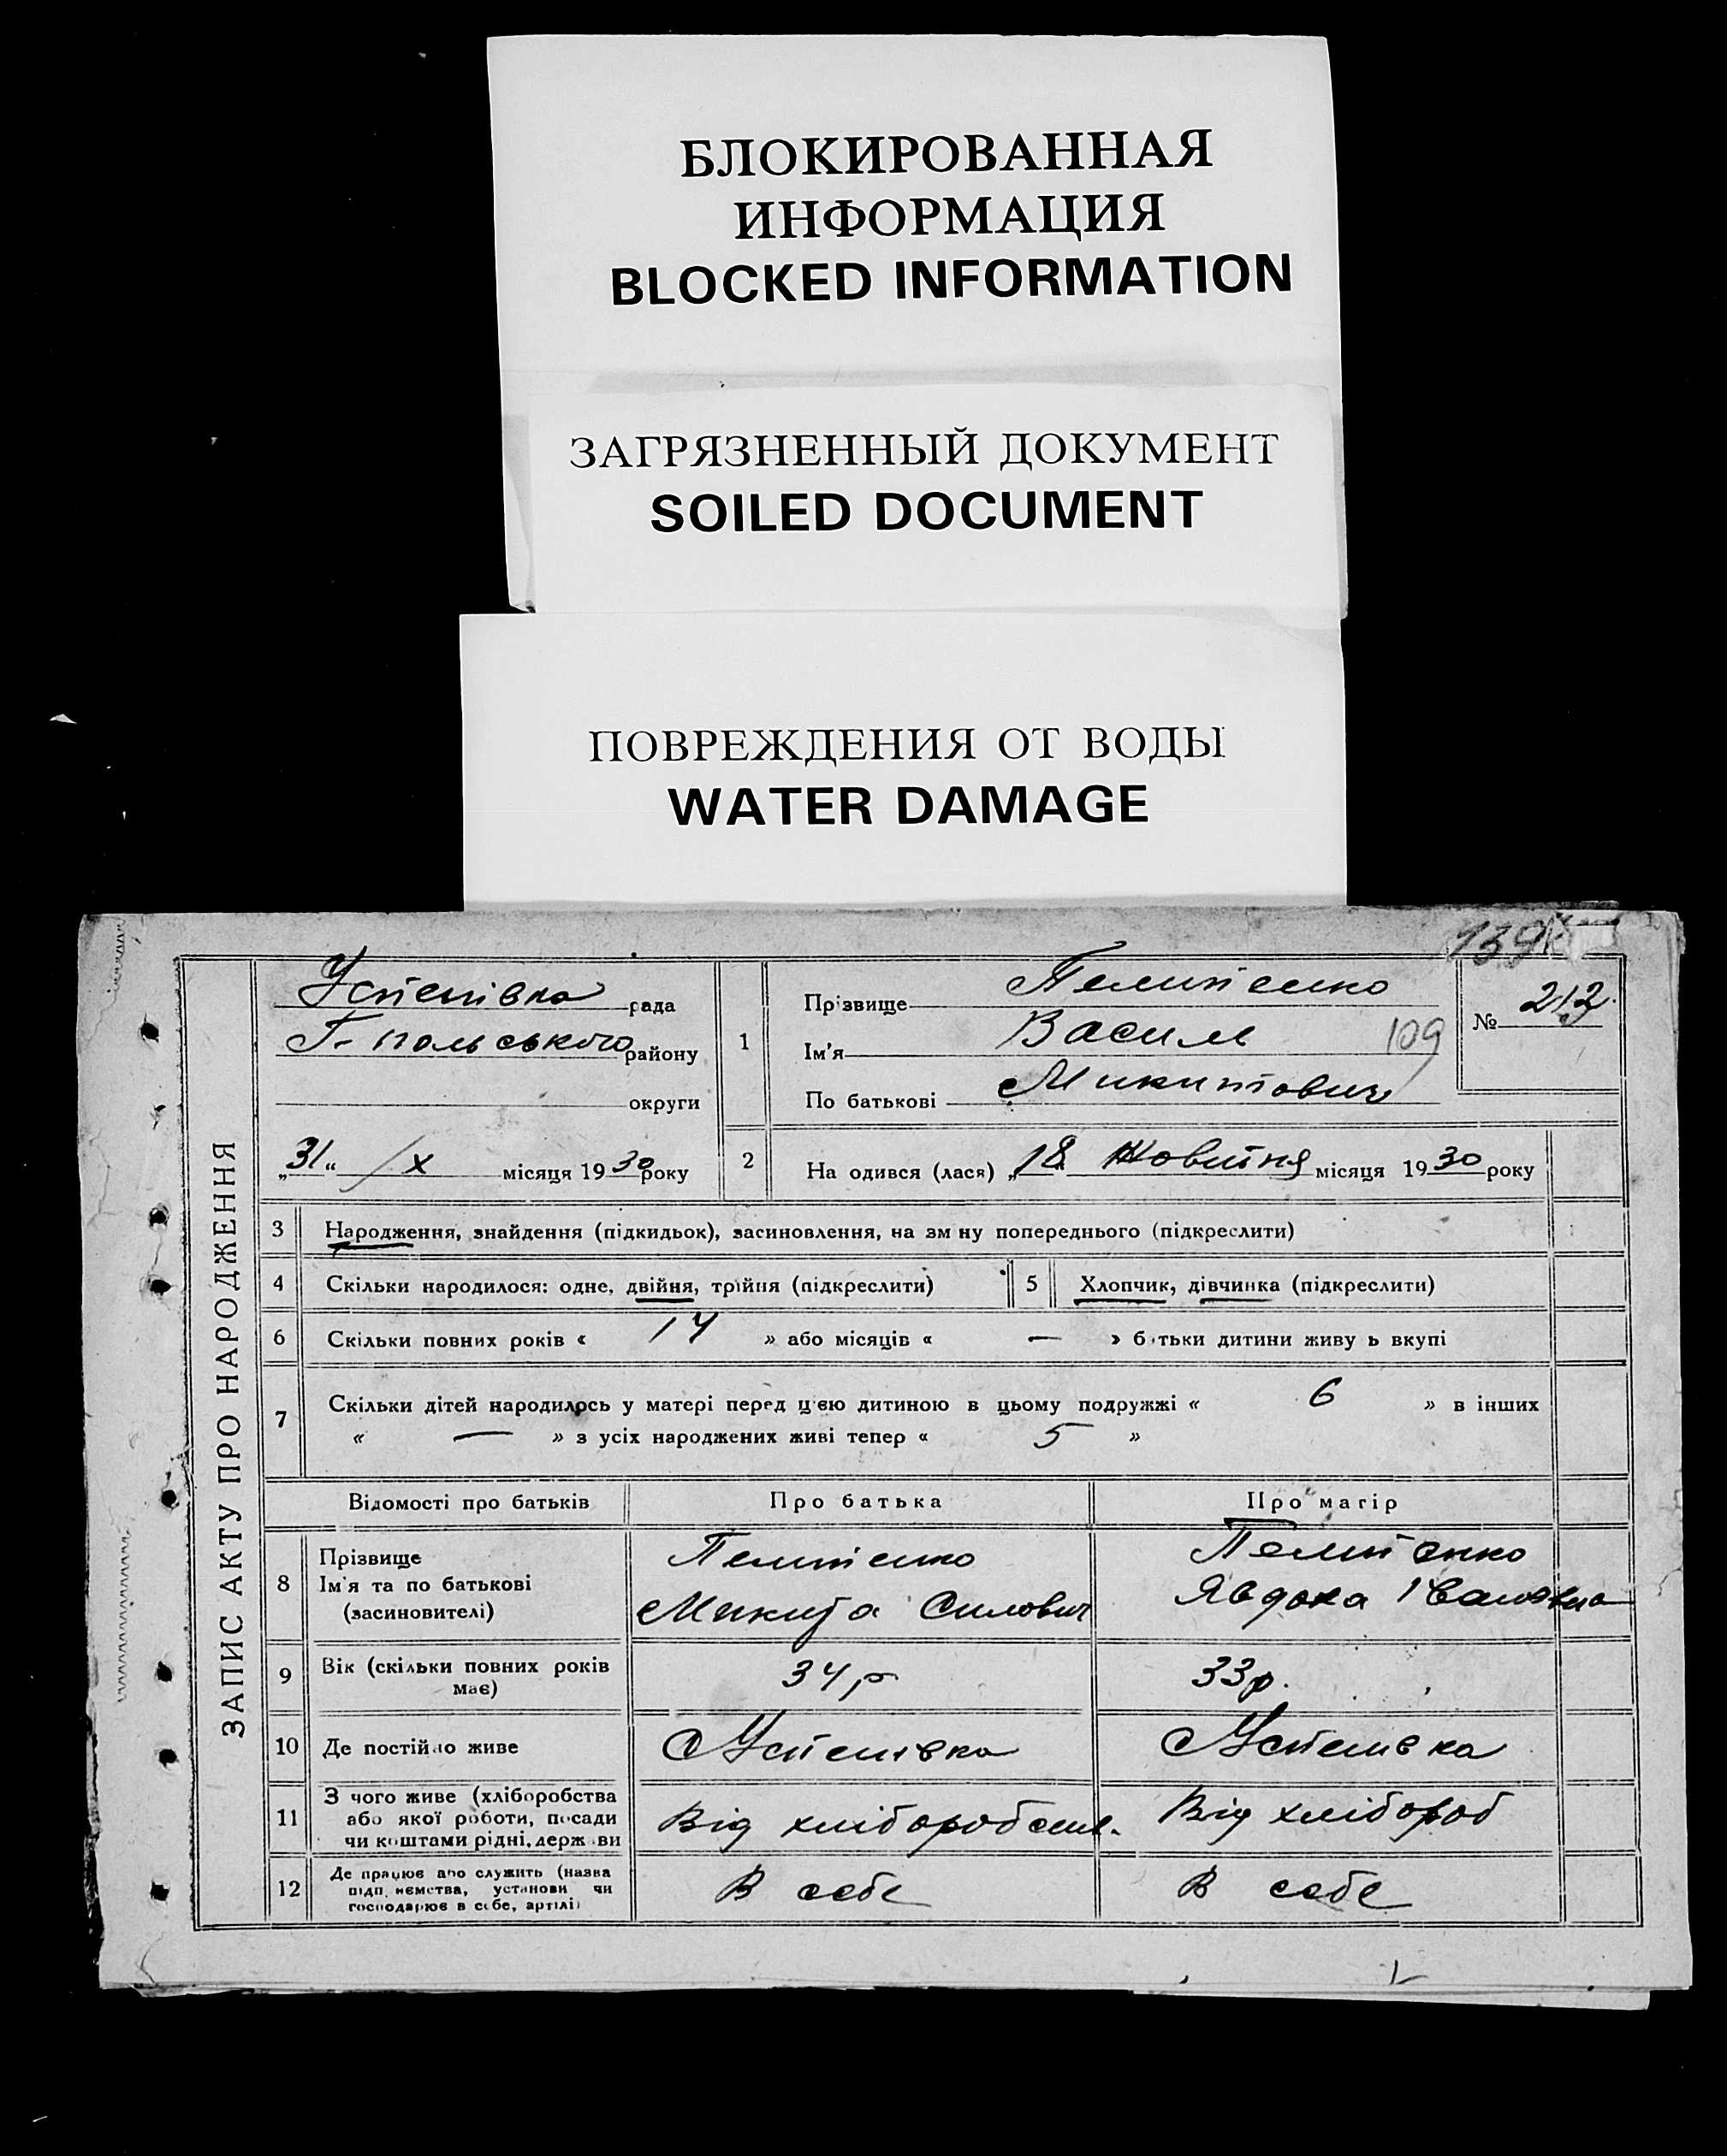 БЛОКИРОВАННАЯ
ИНФОРМАЦИЯ
BLOCKED INFORMATION
ЗАГРЯЗНЕННЫЙ ДОКУМЕНТ
SOILED DOCUMENT
ПОВРЕЖДЕНИЯ ОТ ВОДЫ
WATER DAMAGE
139
ЗАПИС АКТУ ПРО НАРОДЖЕННЯ
Успенівка рада
Г-польського району
округи
„31“ /X місяця 1930 року
1
Прізвище
Ім'я Василь 109
По батькові Микитович
№ 212
2 На одився (лася) „18 Жовтня місяця 1930 року
3 Народження, знайдення (підкидьок), засиновлення, на зм ну попереднього (підкреслити)
4 Скільки народилося: одне, двійня, трійня (підкреслити) 5 Хлопчик, дівчинка (підкреслити)
6 Скільки повних років « 14 » або місяців « — » б тьки дитини живу ь вкупі
7 Скільки дітей народилось у матері перед цею дитиною в цьому подружжі « 6 » в інших
« — » з усіх народжених живі тепер « 5 »
Відомості про батьків Про батька Про матір
8 Прізвище
Ім'я та по батькові
(засиновителі)
Микита Силович
Явдоха Івановна
9 Вік (скільки повних років
має)
34 р
33 р.
10 Де постійно живе Успенівка Успенівка
11 З чого живе (хліборобства
або якої роботи, посади
чи коштами рідні, держ ви
Від хліборобств. Від хлібороб
12 Де працює або служить (назва
підп. ємства, установи чи
господарює в себе, артілі)
В себе В себе